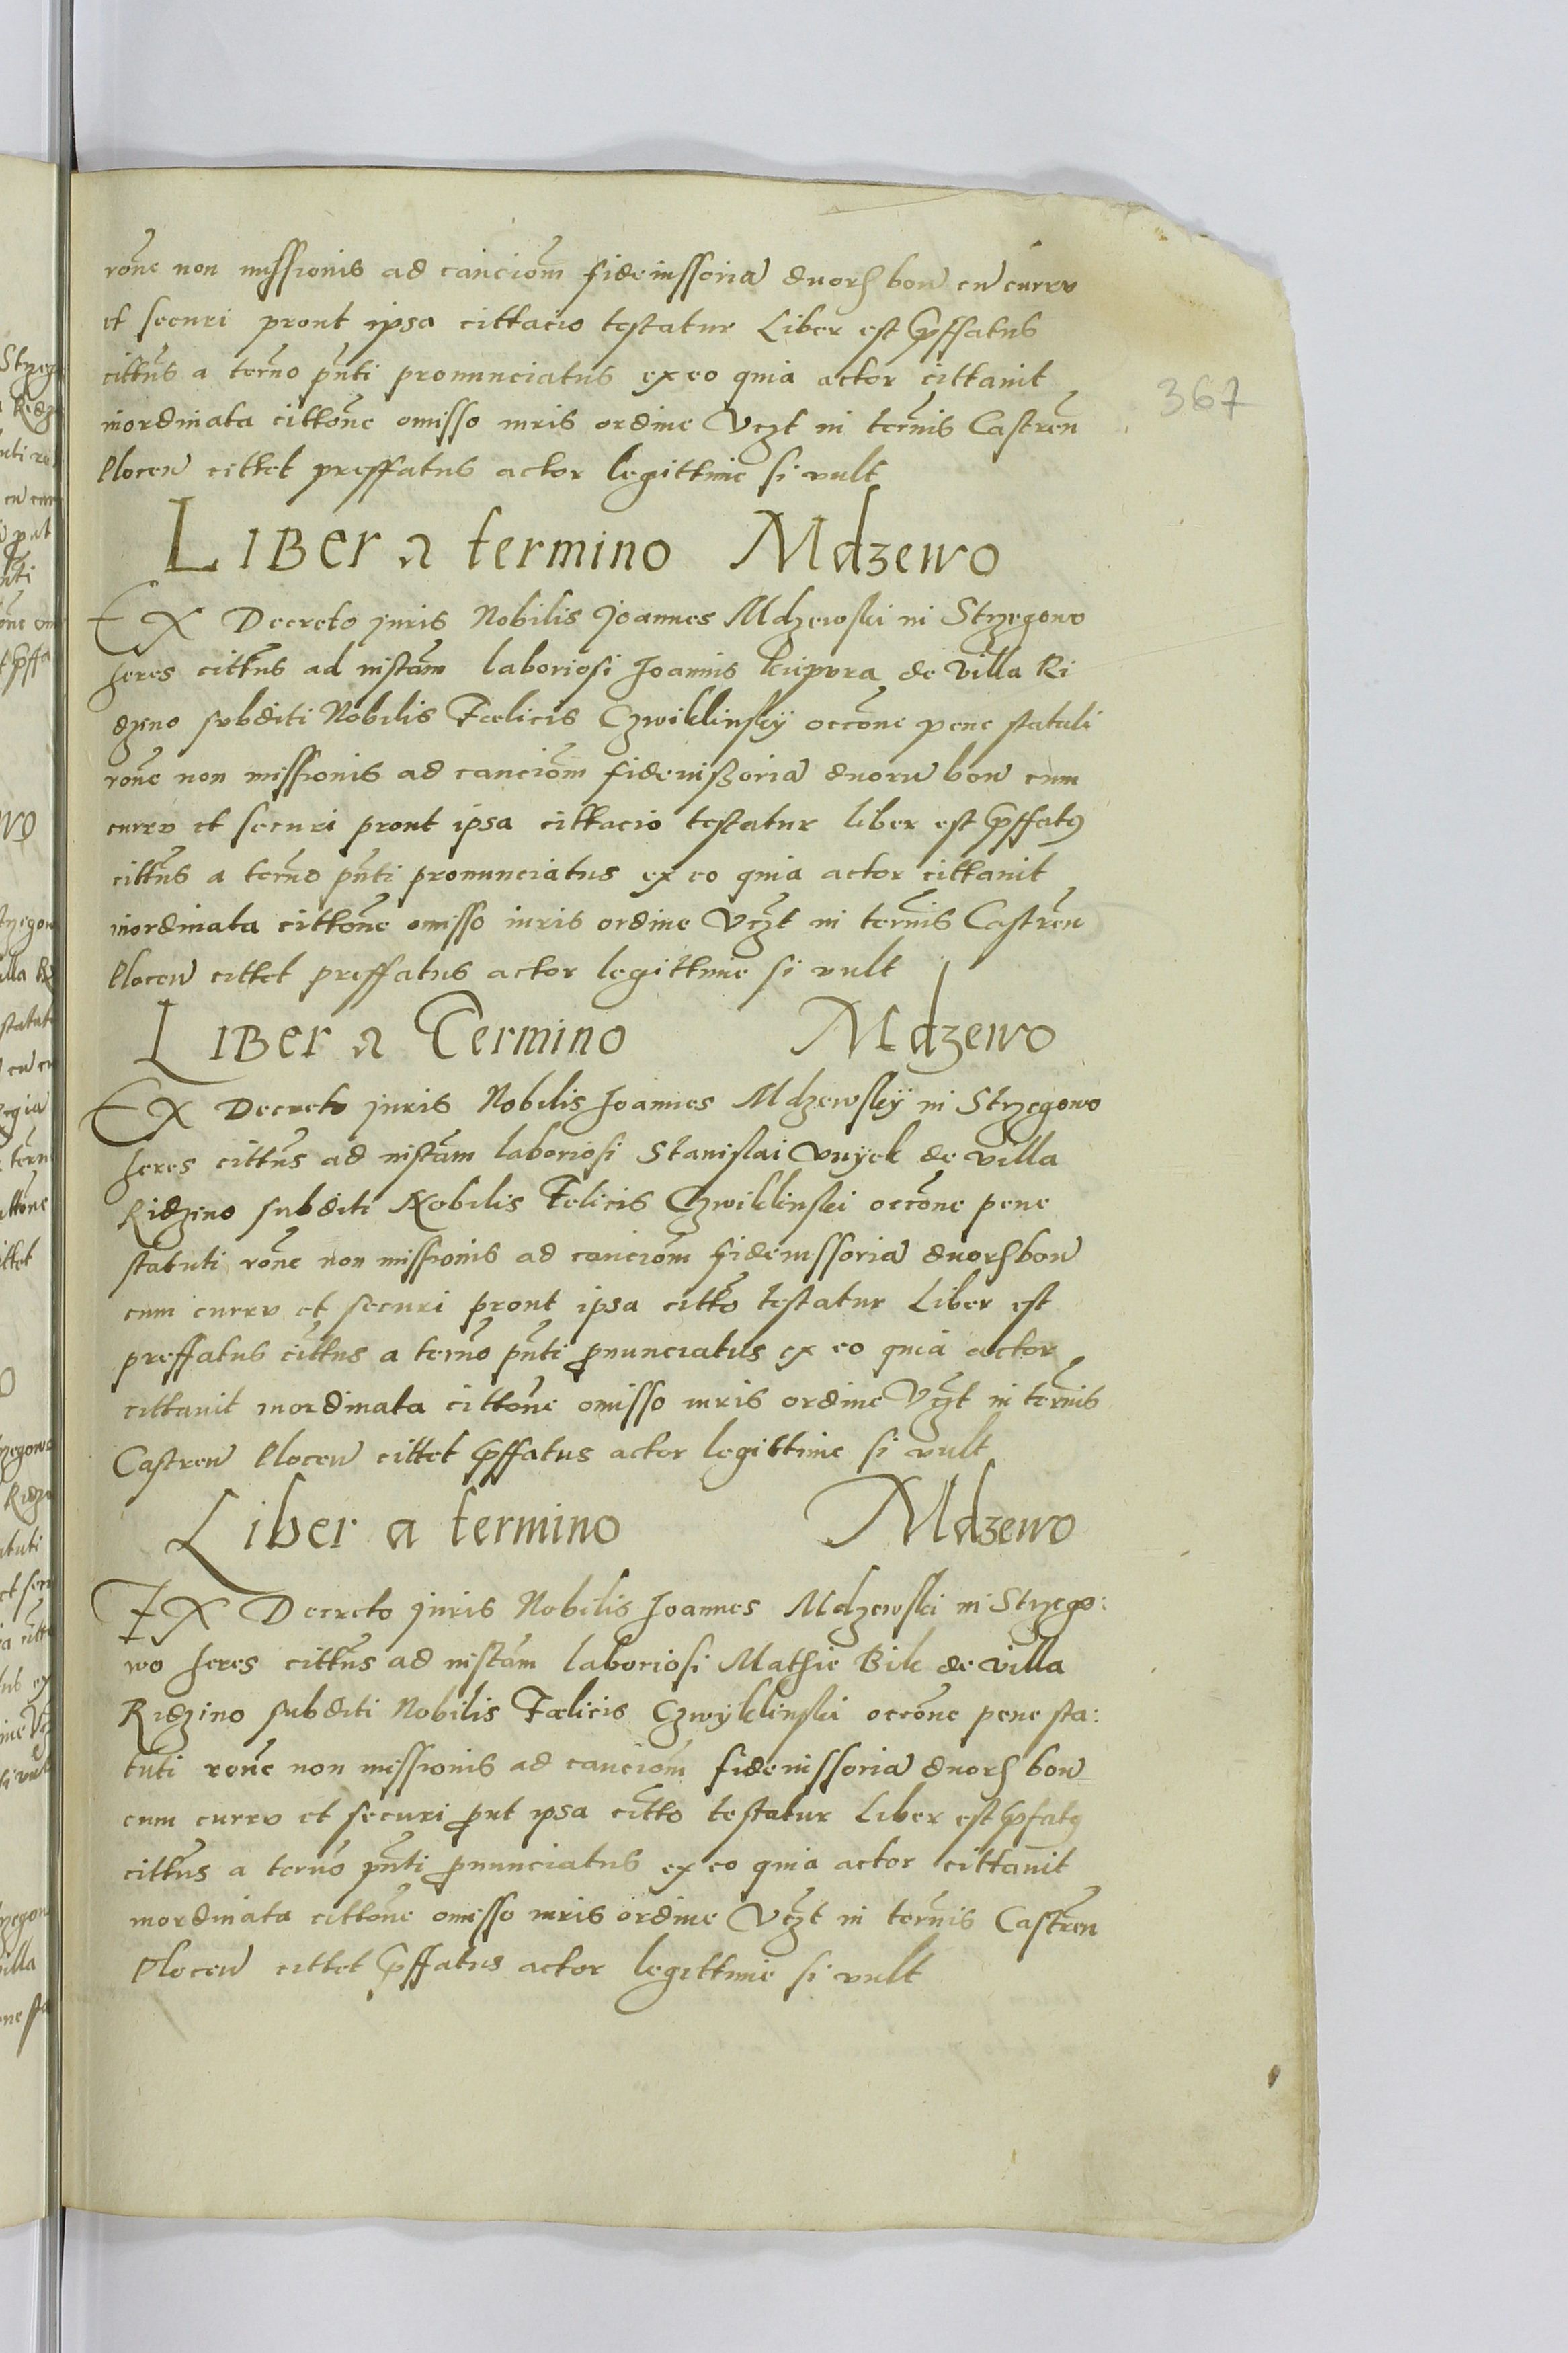 rone non missionis ad canciom fideiussoria duorꝝ bou cu curru
et securi prout ipsa cittacio testatur Liber est Pffatus
cittus a termo pnti pronunciatus ex eo quia actor cittauit
inordinata cittone omisso iuris ordine Vczt in termis Castren
Plocen cittet preffatus actor legittime si vult
367
Liber a termino Mdzewo
Ex Decreto juris Nobilis Joannes Mdzewski in Strzegowo
heres cittus ad instam laboriosi Joannis de villa Ri
dzino subditi Nobilis Fœlicis Czwiklinskÿ occone pene statuti
rone non missionis ad canciom fideiußoria duoru bou cum
curru et securi prout ipsa cittacio testatur liber est Pffatꝰ
cittus a termo pnti pronunciatus ex eo quia actor cittauit
inordinata cittone omisso iuris ordine Vczt in termis Castren
Plocen cittet preffatus actor legittime si vult
Liber a Termino Mdzewo
Ex Decreto juris Nobilis Joannes Mdzewskÿ in Strzegowo
heres cittus ad instam laboriosi Stanislai de villa
Ridzino subditi Nobilis Felicis Czwiklinski occone pene
statuti rone non missionis ad canciom fideiussoria duorꝝ bou
cum curru et securi prout ipsa citto testatur Liber est
preffatus cittus a termo pnti pnunciatus ex eo quia actor
cittauit inordinata cittone omisso iuris ordine Vczt in termis
Castren Plocen cittet Pffatus actor legittime si vult
Liber a termino Mdzewo
Ex Decreto juris Nobilis Joannes Mdzewski in Strzego:
wo heres cittus ad instam laboriosi Mathie Bik de villa
Ridzino subditi Nobilis Fœlicis Czwÿklinski occone pene sta:
tuti rone non missionis ad cauciom fideiussoria duorꝝ bou
cum curru et securi put ipsa citto testatur Liber est Pfatꝰ
cittus a termo pnti pnunciatus ex eo quia actor cittauit
inordinata cittone omisso iuris ordine Vczt in termis Castren
Plocen cittet Pffatus actor legittime si vult